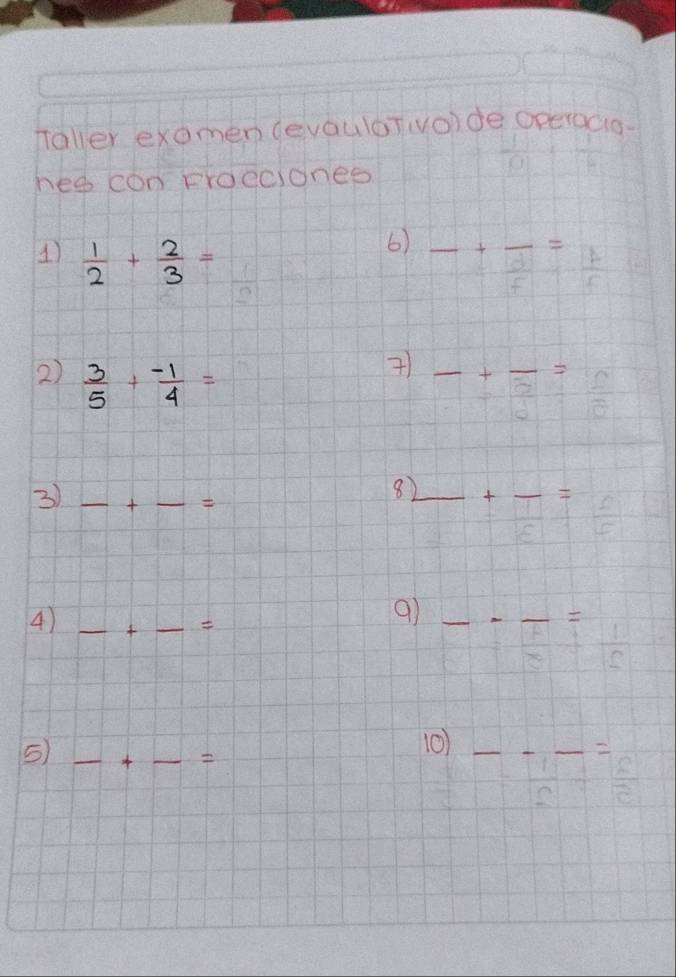 Taller examen (evaulativo) de operacio-
nes con Fracciones
1) 1/2 + 2/3 =
2) 3/5 + -1/4 =
3) _ + _ =
4) _ + _ =
5) _ + _ =
6) _ + _ =
7) _ + _ =
8) _ + _ =
9) _ - _ =
10) _ - _ =